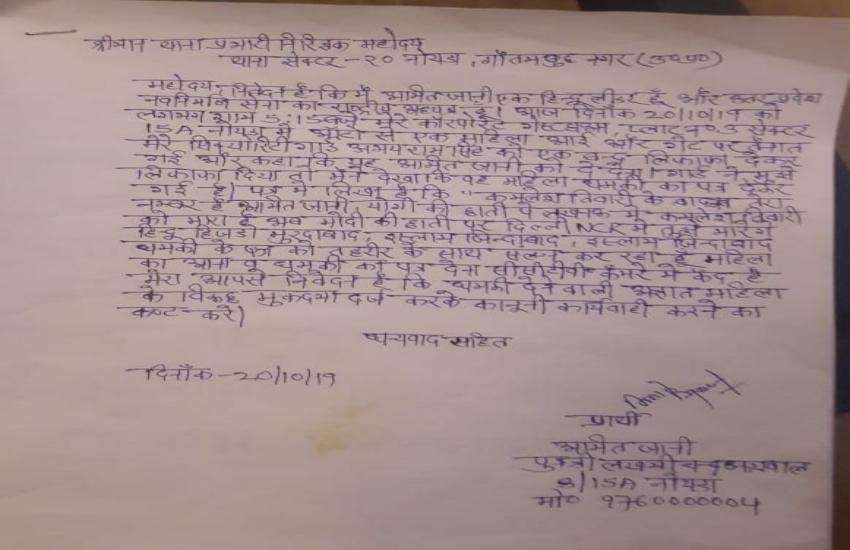 श्रीमान थाना प्रभारी निरिक्षक महोदय
थाना सेक्टर-20 नोयडा, गौतमबुद्ध नगर (उ०प्र०)
महोदय, निवेदन है कि मैं अमित जानी एक हिन्दू लीडर हूँ और उत्तर प्रदेश
नवनिर्माण सेना का राष्ट्रीय अध्यक्ष हूँ। आज दिनांक 20/10/19 को
लगभग शाम 5:15 बजे मेरे कॉरपोरेट गेस्टहाउस, प्लाट न० 3 सेक्टर
15A नोयडा में आल्टो से एक महिला आई और गेट पर तैनात
मेरे सिक्योरिटी गार्ड को एक बन्द लिफाफा देकर
गई और कहा कि यह अमित जानी को दे देना। गार्ड ने मुझे
लिफाफा दिया तो मैंने देखा कि वह महिला धमकी का पत्र देकर
गई है। पत्र में लिखा है कि "कमलेश तिवारी के बाद अब तेरा
नम्बर है अमित जानी, योगी की छाती पे लखनऊ में कमलेश तिवारी
को मारा है अब मोदी की छाती पर दिल्ली NCR में तुझे मारेंगे
हिन्दू हिजड़ा मुर्दाबाद, इस्लाम जिन्दाबाद, इस्लाम जिन्दाबाद
धमकी के पत्र को तहरीर के साथ सलग्न कर रहा हूँ महिला
का आना व धमकी का पत्र देना सीसीटीवी कैमरे में कैद है
मेरा आपसे निवेदन है कि धमकी देने वाली अज्ञात महिला
के विरूद्ध मुकदमा दर्ज करके कानूनी कार्यवाही करने का
कष्ट करे)
धन्यवाद सहित
दिनाँक-20/10/19
प्रार्थी
अमित जानी
पुत्र श्री लखमी चन्द
3/15A नोयडा
मो० 9760000004